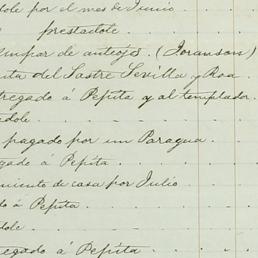 dole por el mes de Junio
prestadole.
limpar de anteojo. (Joranson)
ita del Sastre Sevilla y Roa.
tregado á Pepita y al templador.
dole.
pagado por un Paragua.
gado á Pepita.
miento de casa por Julio
do á Pepita.
dole.
regado á Pepita